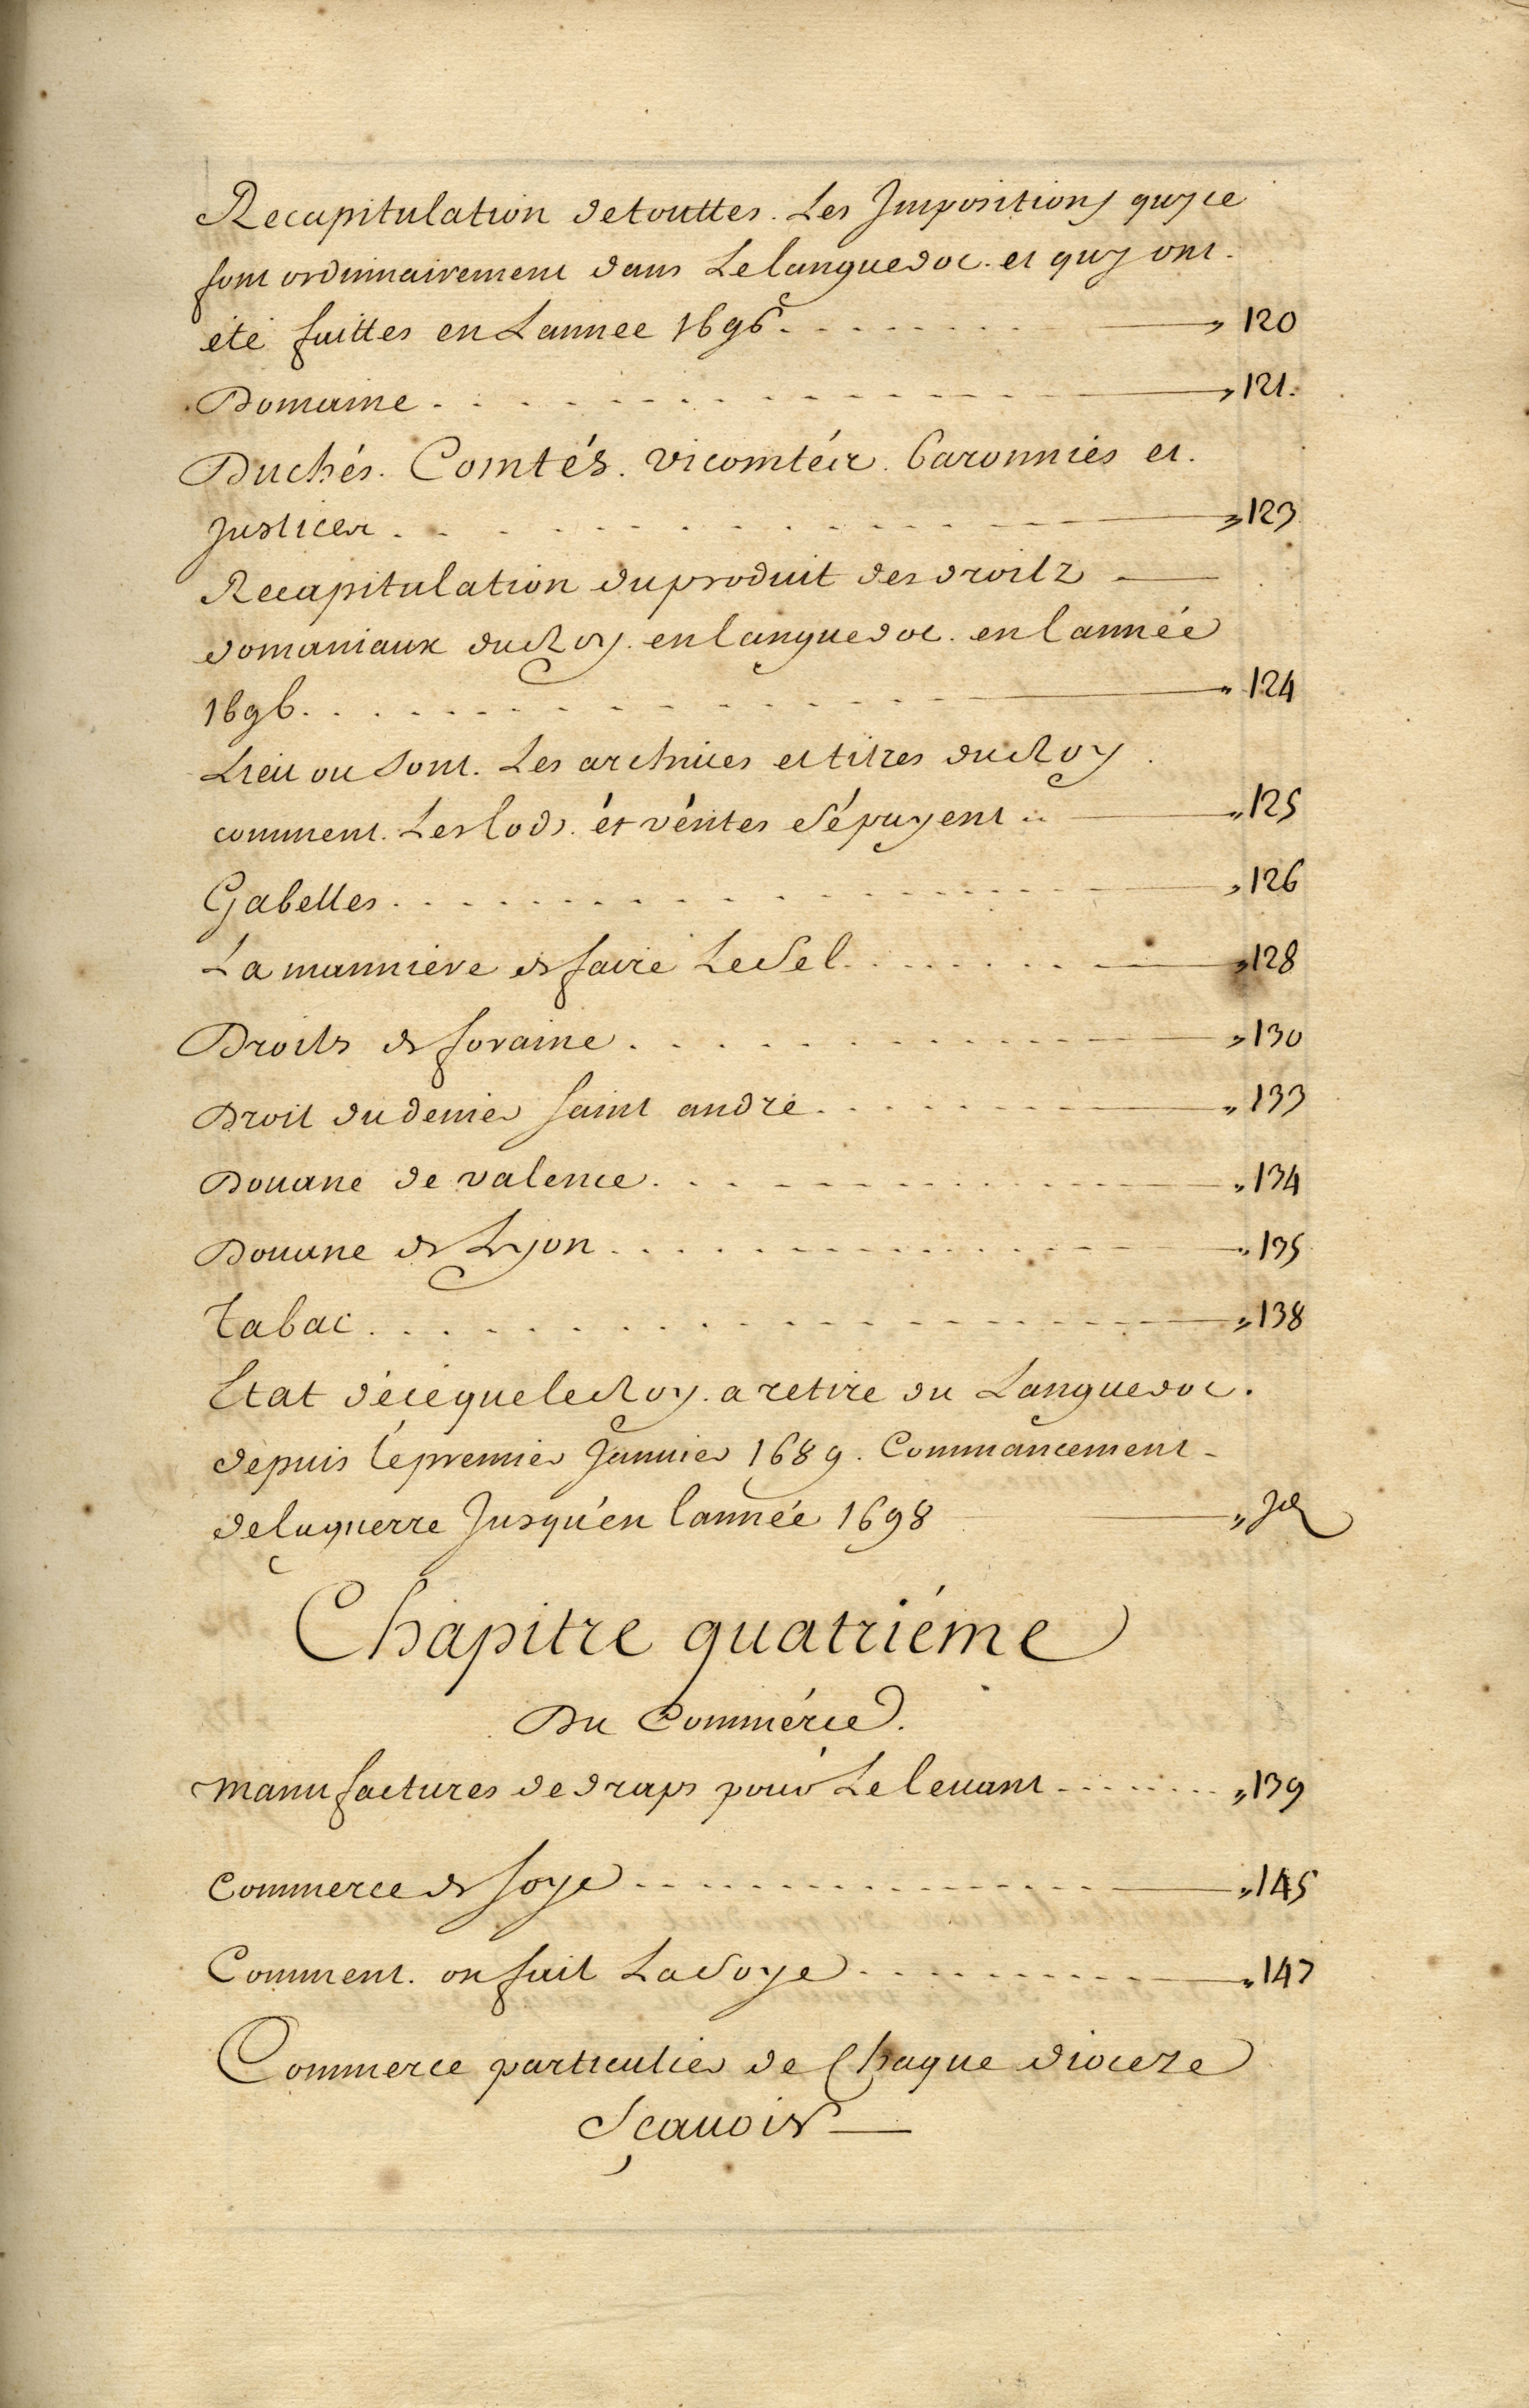 Recapitulation de touttes. Les Impositions quy ce
font ordinnairement dans Le languedoc. et quy ont.
été faittes en Lannee 1696 . . . . . . . . 120
Domaine . . . . . . . . . . . 121.
Duchés. Comtés. vicomtéz. Baronnies et.
Justices . . . . . . . . . . . 123
Recapitulation du produit des droitz
domaniaux du Roy. en languedoc. en lannée
1696 . . . . . . . . . . . . 124
Lieu ou sont. Les archiues et titres du Roy.
comment. Les lods. ét véntes sépayent . . 125
Gabelles . . . . . . . . . . . 126
La manniere de faire Le Sel . . . . . . . 128
Droits de foraine . . . . . . . . . . 130
Droit du denier saint andré . . . . . . . 133
Douane de valence . . . . . . . . . . 134
Douane de Lyon . . . . . . . . . . 135
Tabac . . . . . . . . . . . . 138
Etat dé ce que le Roy. a retiré du Languedoc.
depuis le premier Januier 1689. Commancement
de la guerre Jusqu'en lannée 1698 Jd
Chapitre quatriéme
Du Commérce.
manufactures de draps pour Le leuant . . . . . 139
Commerce de soye . . . . . . . . . . 145
Comment. on fait La Soye . . . . . . . . 147
Commerce particulier de Chaque dioceze
Sçauoir